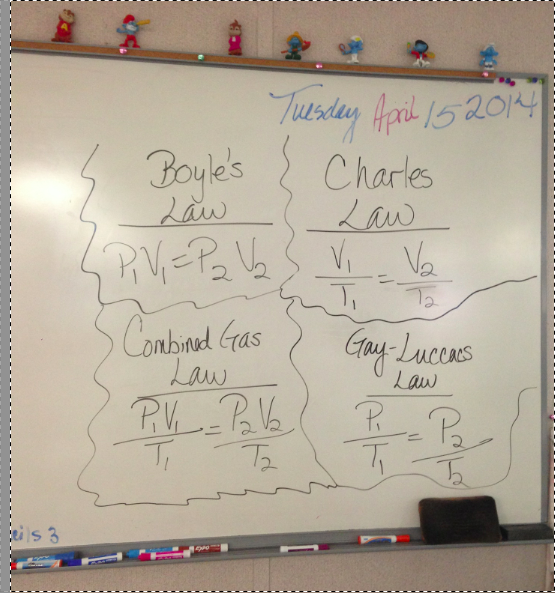 Tuesday April 15 2014
Boyle's
Law
P₁V₁=P₂V₂
Charles
Law
V₁/T₁ = V₂/T₂
Combined Gas
Law
P₁V₁/T₁ = P₂V₂/T₂
Gay-Luccacs
Law
P₁/T₁ = P₂/T₂
EXPO